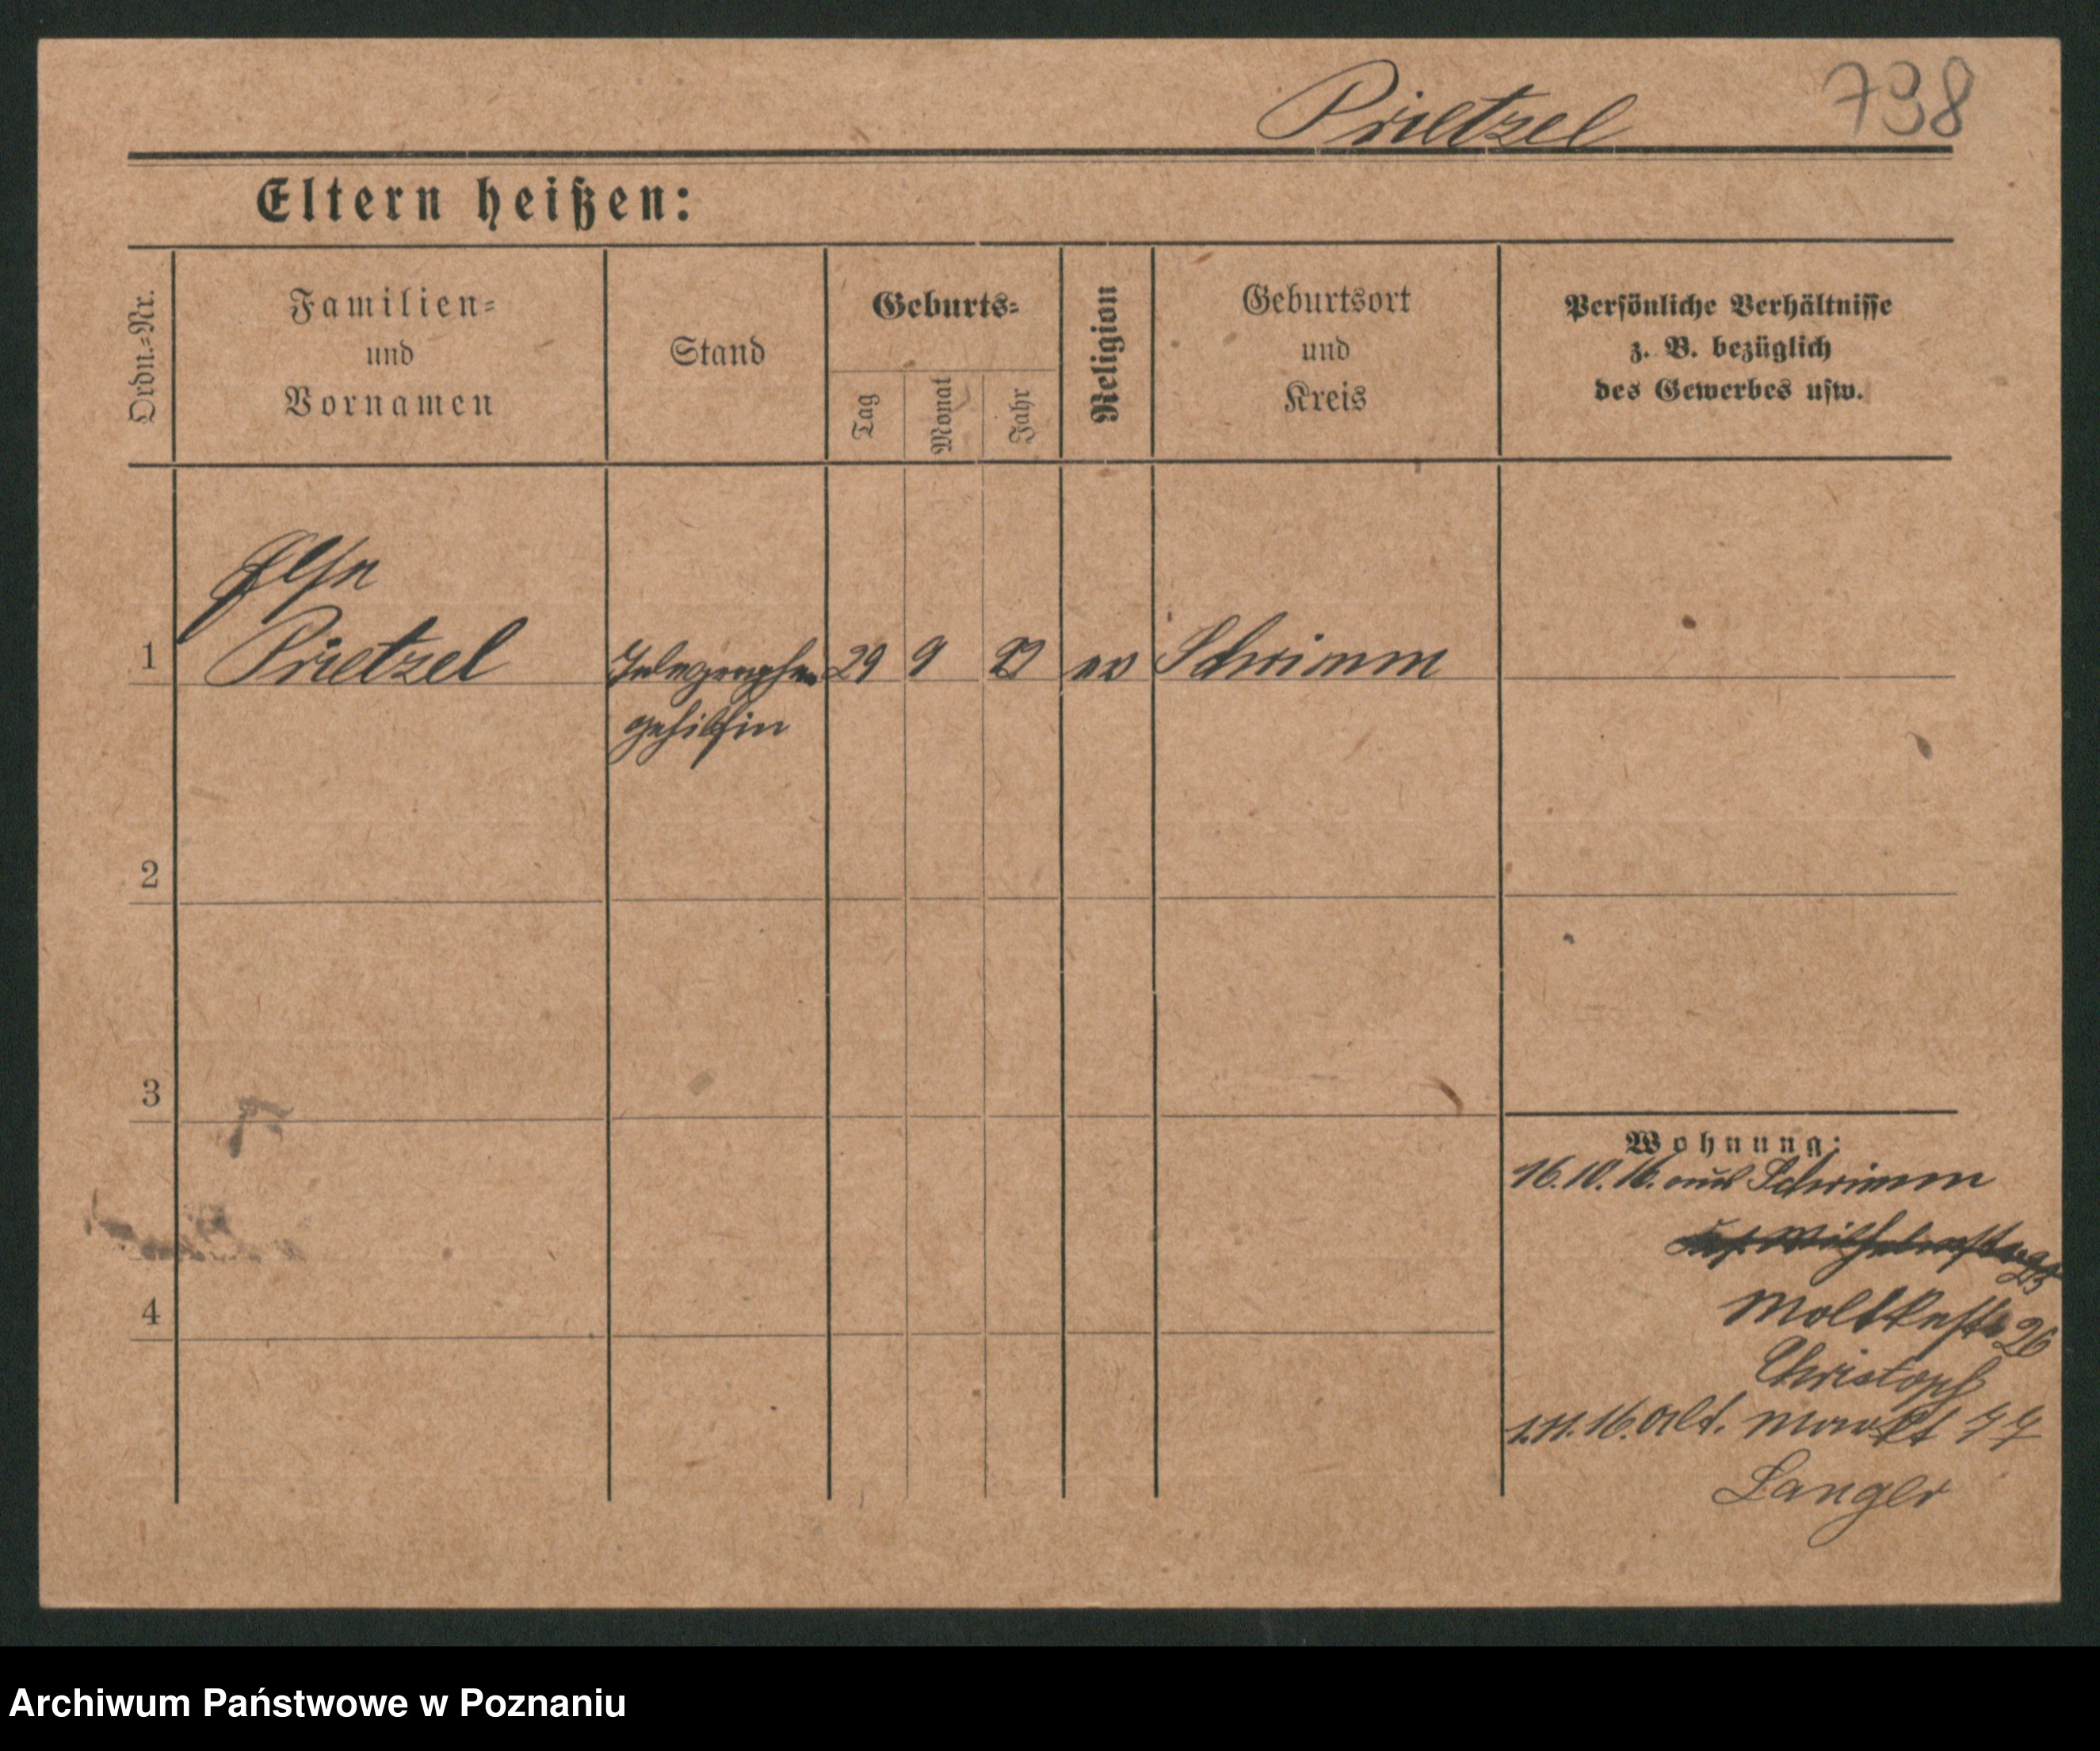 Prietzel 738
Eltern heißen:
Ordn.-Nr.
Familien-
und
Vornamen
Stand
Geburts-
Tag
Monat
Jahr
Religion
Geburtsort
und
Kreis
Persönliche Verhältnisse
z. B. bezüglich
des Gewerbes usw.
Else
1 Prietzel Telegraphen 29 9 ev Schrimm
gehilfin
2
3
4
Wohnung:
16.10.16. aus Schrimm
Moltkestr 26
Christoph
1.11.16. Alt. Markt 77
Langer
Archiwum Państwowe w Poznaniu